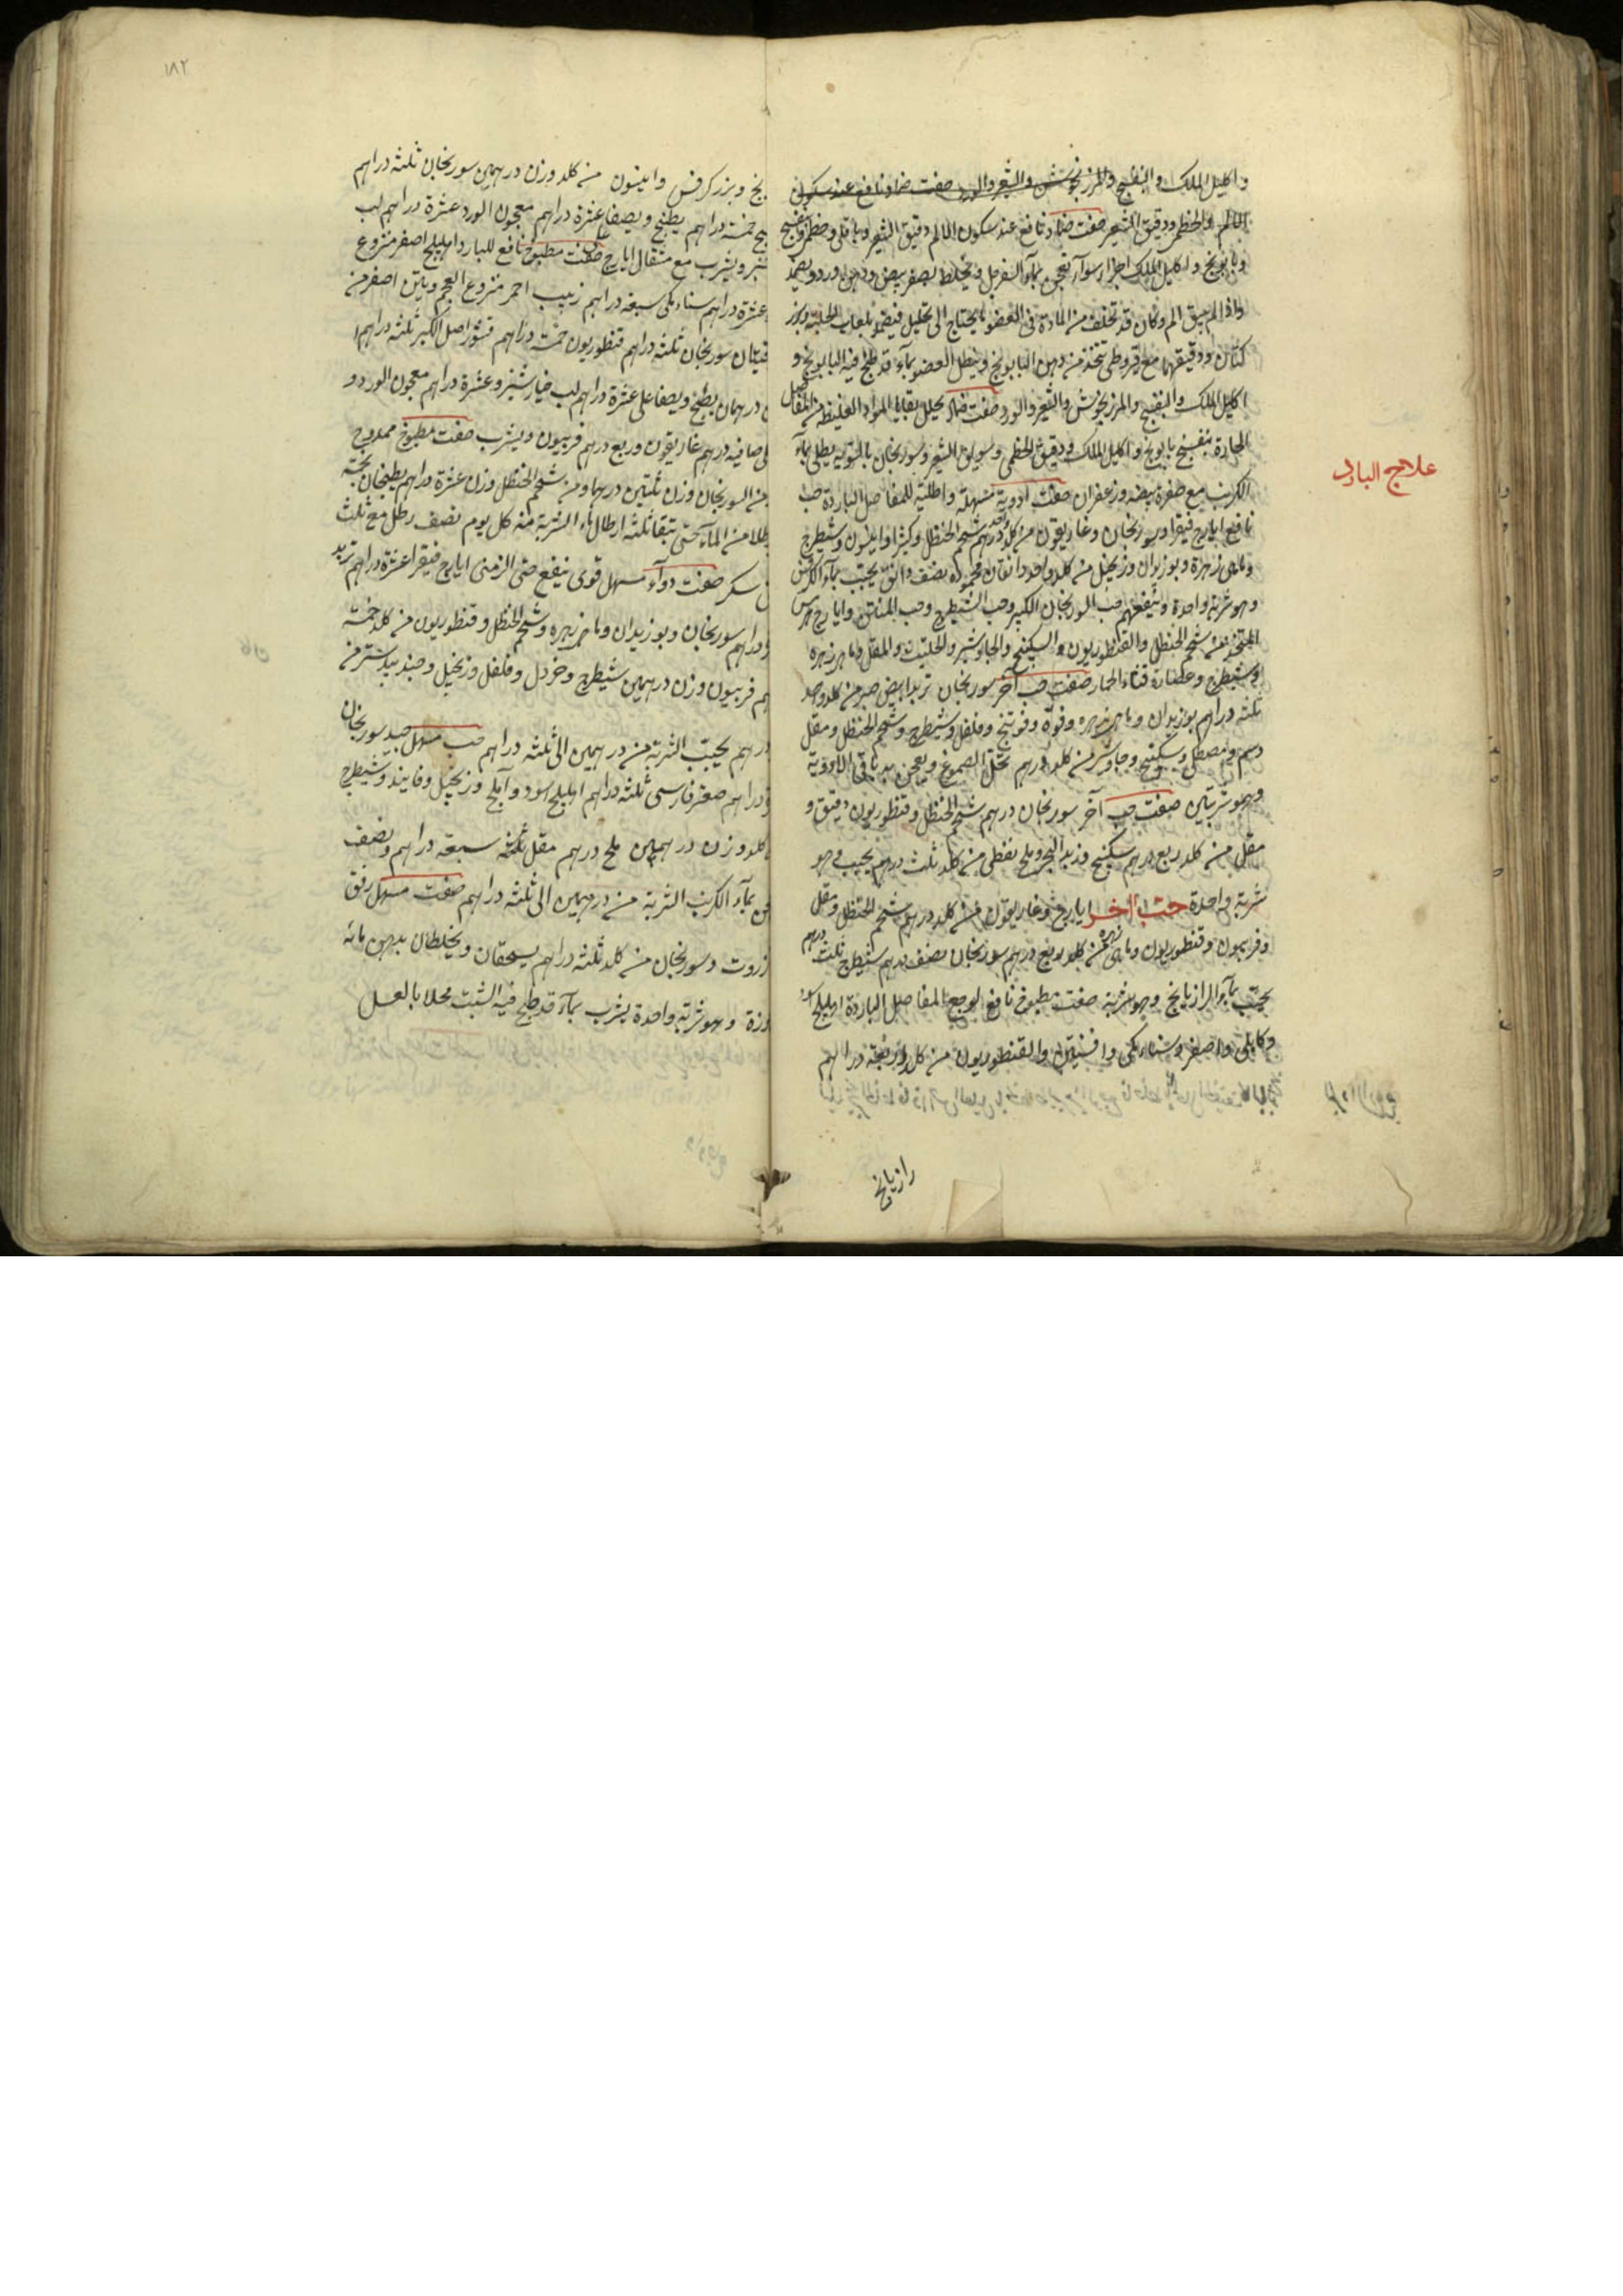 واكليل الملك والبنفسج والمرزنجوش والشعير والورد صفت ضماد نافع عند سكون
الالم والخطمى ودقيق الشعير صفت ضماد نافع عند سكون الالم دقيق الشعير وباقلى وخطمى وبنفسج
وبابونج واكليل الملك اجزاء سوآء تعجن بمآء السفرجل ويخلط بصفر بيض ودهن ورد ويضمد
واذا لم يبق الم وكان قد تخلف من المادة فى العضو ما يحتاج الى تحليل فيضمد بلعاب الحلبة وبزر
كتان ودقيقهما مع قيروطى تتخذ من دهن البابونج وينطل العضو بمآء قد طبخ فيه البابونج و
اكليل الملك والبنفسج والمرزنجوش والشعير والورد صفت ضماد يحلل بقايا المواد الغليظه من المفاصل
الحارة بنفسج بابونج واكليل الملك ودقيق الخطمى وسويق الشعير وسورنجان بالسويه يطلى بمآء
الكرنب مع صفرة بيضه وزعفران صفت ادوية مسهلة واطلية للمفاصل الباردة حب
علاج البارد
نافع ايارج فيقرا وسورنجان وغاريقون من كلواحد درهم شحم الحنظل وكثيرا وانيسون وشيطرج
وماهى زهرة وبوزيدان وزنجبيل من كلواحد دانقان محموده نصف دانق يحبب بمآء الكرفس
وهو شربة واحدة وينفعهم حب السورنجان الكبير وحب الشيطرج وحب المنتن وايارج هرمس
المتخذ من شحم الحنظل والقنطوريون والسكبنج والجاوشير والحلتيت والمقل وماهى زهره
وشيطرج وعصارة قثاء الحمار صفت حب آخر سورنجان تربد ابيض صبر من كلواحد
ثلثه دراهم بوزيدان وماهى زهره وفوّة وفوتنج وفلفل وشيطرج وشحم الحنظل ومقل
وسكبنج وجاوشير من كلد درهم تحل الصموغ ويعجن به باقى الادوية
وهو شربتين صفت حب آخر سورنجان درهم شحم الحنظل وقنطوريون دقيق و
مقل من كلد ربع درهم سكبنج وزبد البحر وملح نفطى من كلد ثلث درهم يحبب وهو
شربة واحدة حب آخر ايارج وغاريقون من كلد درهم شحم الحنظل ومقل
وفربيون وقنطوريون وماهى زهره من كلد ربع درهم سورنجان نصف درهم شيطرج ثلث درهم
يحبّب بمآء الرازيانج وهو شربة صفت مطبوخ نافع لوجع المفاصل الباردة اهليلج اسود
وكابلى واصفر وسناء مكى وافسنتين والقنطوريون من كلد اربعة دراهم
رازيانج
١٨٢
نج وبزر كرفس وانيسون من كلد وزن درهمين سورنجان ثلثه دراهم
يج خمسة دراهم يطبخ ويصفا على عشرة دراهم معجون الورد عشرة دراهم لب
شنبر ويشرب مع مثقال ايارج صفت مطبوخ نافع للبارد اهليلج اصفر منزوع
عشرة دراهم سناء مكى سبعه دراهم زبيب احمر منزوع العجم وتين اصفر من
سورنجان ثلثه دراهم قنطوريون خمسة دراهم قشور اصل الكبر ثلثه دراهم
درهمان يطبخ ويصفا على عشرة دراهم لب خيارشنبر وعشرة دراهم معجون الورد و
صافيه درهم غاريقون وربع درهم فربيون ويشرب صفت مطبوخ ممدوح
من السورنجان وزن ثلثين درهما ومن شحم الحنظل وزن عشرة دراهم يطبخان بخمسة
طلا من المآء حتى تبقا ثلثه ارطال مآء الشربة منه كل يوم نصف رطل مع ثلث
سكر صفت دوآء مسهل قوى ينفع حتى الزمنى ايارج فيقرا عشرة دراهم تربد
دراهم سورنجان وبوزيدان وماهى زهره وشحم الحنظل وقنطوريون من كلد خمسة
هم فربيون وزن درهمين شيطرج وخردل وفلفل وزنجبيل وجندبيدستر من
درهم يحبّب الشربة من درهمين الى ثلثه دراهم حب مسهل جيد سورنجان
دراهم صعتر فارسى ثلثه دراهم اهليلج اسود وآملج وزنجبيل وفانيد وشيطرج
كلد وزن درهمين ملح درهم مقل ثلثه سبعة دراهم ونصف
بمآء الكرنب الشربة من درهمين الى ثلثه دراهم صفت مسهل رفق
زروت وسورنجان من كلد ثلثه دراهم يسحقان ويخلطان بدهن مائه
وزة وهو شربة واحدة يشرب بمآء قد طبخ فيه الشبت محلا بالعسل